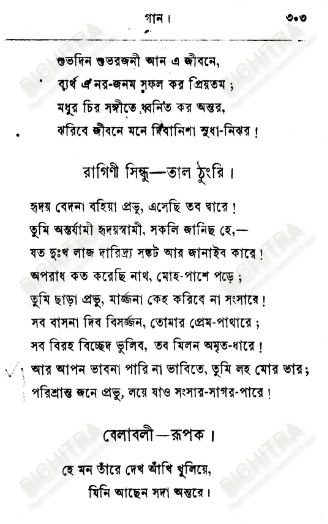 গান।
৩০৩
শুভদিন শুভরজনী আন এ জীবনে,
ব্যর্থ এ নর-জনম সফল কর প্রিয়তম;
মধুর চির সঙ্গীতে ধ্বনিত কর অন্তর,
ঝরিবে জীবনে মনে দিবানিশা সুধা-নিঝর!
রাগিণী সিন্ধু—তাল ঠুংরি।
হৃদয় বেদনা বহিয়া প্রভু, এসেছি তব দ্বারে!
তুমি অন্তর্যামী হৃদয়স্বামী, সকলি জানিছ হে,—
যত দুঃখ লাজ দারিদ্র্য সঙ্কট আর জানাইব কারে!
অপরাধ কত করেছি নাথ, মোহ-পাশে পড়ে;
তুমি ছাড়া প্রভু, মার্জ্জনা কেহ করিবে না সংসারে!
সব বাসনা দিব বিসর্জ্জন, তোমার প্রেম-পাথারে;
সব বিরহ বিচ্ছেদ ভুলিব, তব মিলন অমৃত-ধারে!
আর আপন ভাবনা পারি না ভাবিতে, তুমি লহ মোর ভার;
পরিশ্রান্ত জনে প্রভু, লয়ে যাও সংসার-সাগর-পারে!
বেলাবলী—রূপক।
হে মন তাঁরে দেখ আঁখি খুলিয়ে,
যিনি আছেন সদা অন্তরে।
BICHITRA